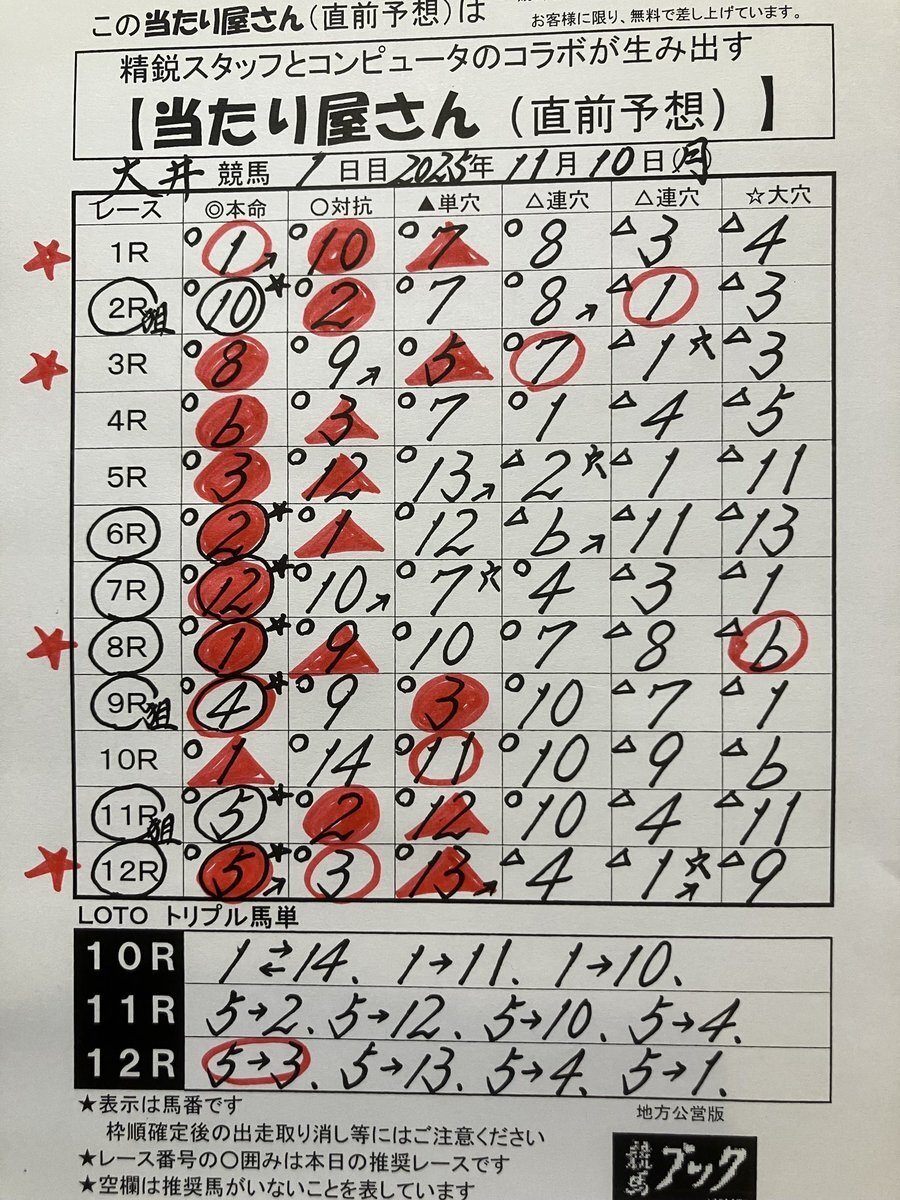 この当たり屋さん(直前予想)は
お客様に限り、無料で差し上げています。
精鋭スタッフとコンピュータのコラボが生み出す
【当たり屋さん(直前予想)】
大井 競馬 1 日目 2025年 11月 10日(月)
レース ◎本命 ○対抗 ▲単穴 △連穴 △連穴 ☆大穴
1R ○1↗ ○10 ○7 ○8 △3 △4
2R狙 ○10★ ○2 ○7 ○8↗ △1 △3
3R ○8 ○9↗ ○5 ○7 △1穴 △3
4R ○6 ○3 ○7 ○1 △4 △5
5R ○3 ○12 ○13↗ △2穴 △1 △11
6R ○2★ ○1 ○12 △6↗ △11 △13
7R ○12★ ○10↗ ○7穴 ○4 △3 △1
8R ○1★ ○9 ○10 ○7 △8 △6
9R狙 ○4★ ○9 ○3 ○10 △7 △1
10R ○1 ○14 ○11 ○10 △9 △6
11R狙 ○5★ ○2 ○12 ○10 △4 △11
12R ○5★↗ ○3 ○13↗ △4 △1穴↗ △9
LOTO トリプル馬単
10R 1⇄14、 1→11、 1→10、
11R 5→2、 5→12、 5→10、 5→4、
12R 5→3、 5→13、 5→4、 5→1、
★表示は馬番です
枠順確定後の出走取り消し等にはご注意ください
★レース番号の○囲みは本日の推奨レースです
★空欄は推奨馬がいないことを表しています
地方公営版
競馬ブック